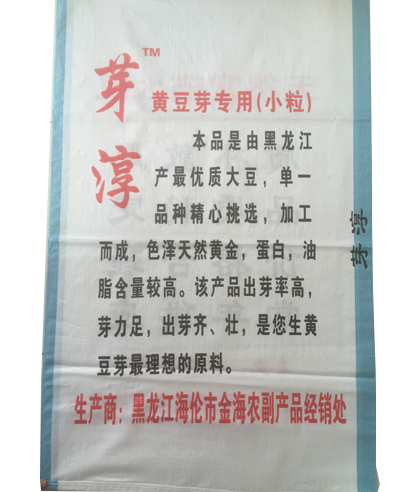 芽淳™
黄豆芽专用(小粒)
本品是由黑龙江
产最优质大豆，单一
品种精心挑选，加工
而成，色泽天然黄金，蛋白，油
脂含量较高。该产品出芽率高，
芽力足，出芽齐、壮，是您生黄
豆芽最理想的原料。
生产商：黑龙江海伦市金海农副产品经销处
芽淳